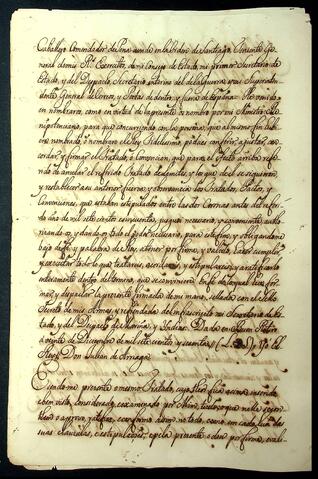 Caballero Comendador de en la orden de Santiago, Theniente Ge-
neral de mis R.s Exercitos, de mi Consejo de Estado, mi primer Secretario de
Estado, y del Despacho, Secretario interino del de la Guerra, y mi Superinten-
dente General de Correos, y Postas de dentro, y fuera de España: He venido
en nombraros, como en virtud de la presente os nombro por mi Ministro Ple-
nipotenciario, para que concurriendo con la persona, que al mismo fin hubie-
re nombrado, o nombrare el Rey Fidelissimo, podaes conferir, ajustar, con-
cordar, y firmar el Tratado, o Convencion, que para el efecto arriba referi-
do de anular el referido Tratado de limites, y lo que de el se siguieron
y restablecer asi anterior fuerza, y observancia los Tratados, Pactos, y
Convenciones, que estaban estipulados entre las dos Coronas antes del referi-
do año de mil sete centos cincuenta, juzgareis necesario, y conveniente auto-
rizando os, y dando os todo el poder necesario, para este fin, y obligandome
bajo de fee, y palabra de Rey, a tener por firme, y valido, hacer cumplir,
y executar todo lo que tratareis, acordareis, y estipulareis, y a ratificarlo
enteramente dentro del termino, que se conviniere. En fee de lo qual hice for-
mar, y despachar la presente firmada de mi mano, sellada con el sello
Secreto de mis Armas, y refrendada del infrascripto mi Secretario de Es-
tado, y del Despacho de Marina, y Indias. Dada en Buen Retiro
a veinte de Diciembre de mil sete cientos y sesenta. Yo El
Rey. Don Julian de Arriaga.
E sendo me presente o mesmo Tratado, cujo theor fica acima inserido
e bem visto, considerado, e examinado por Mim, tudo o que nelle se con-
tem o aprovo, ratifico, e confirmo, assim no todo, como em cada hũa das
suas clausulas, e estipulações, e pela presente o dou por firme, e vali-